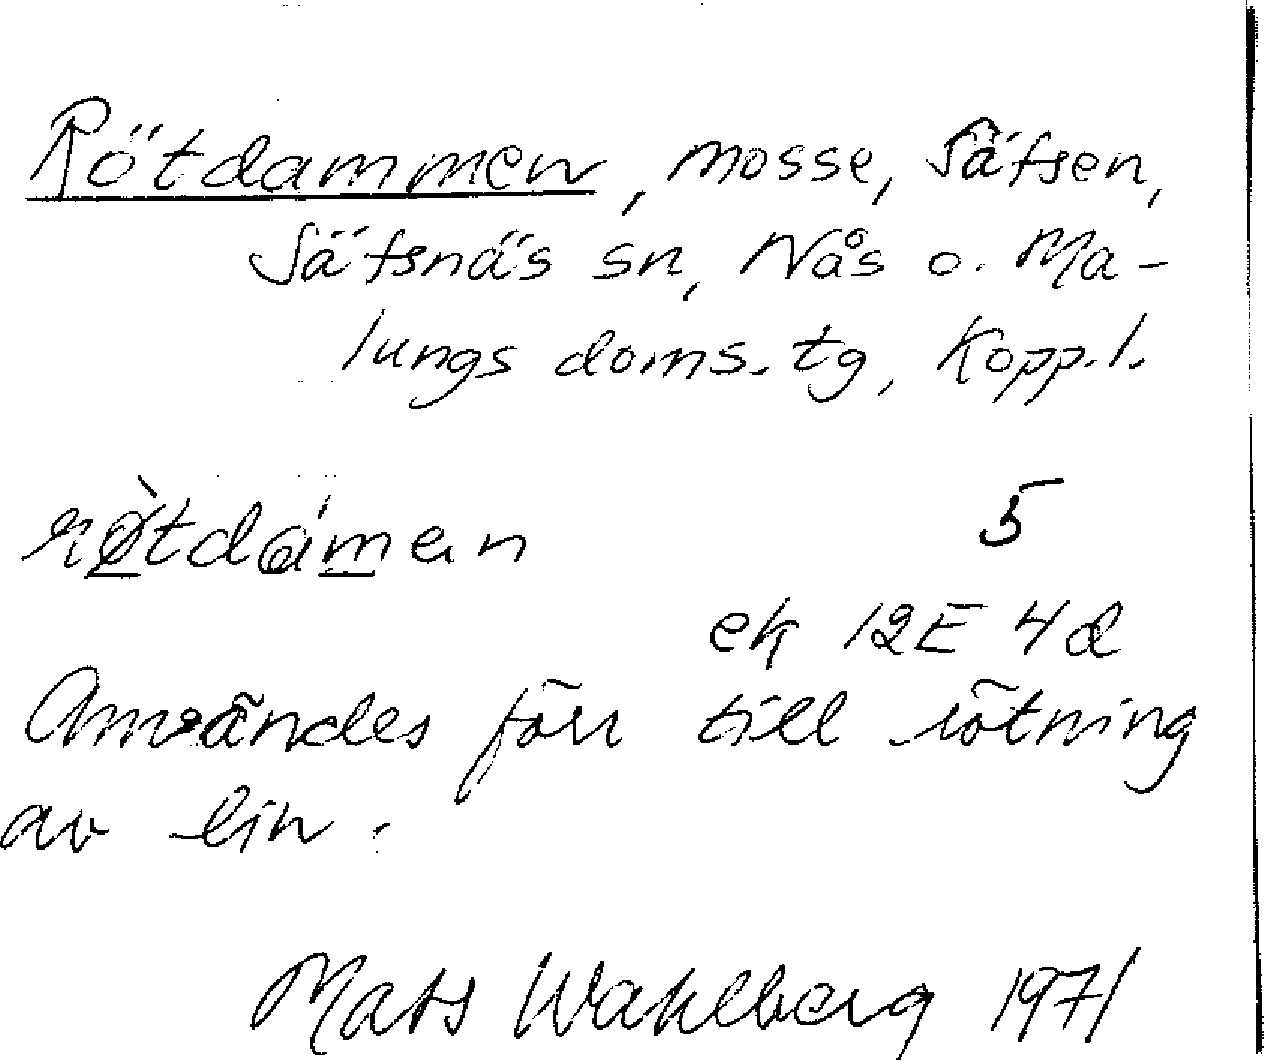 Rötdammen, mosse, Säfsen,
Säfsnäs sn, Nås o. Ma-
lungs doms. tg, Kopp.l.
rø̀tdámen 5
ek 12E 4d
Användes förr till rötning
av lin.
Mats Wahlberg 1971